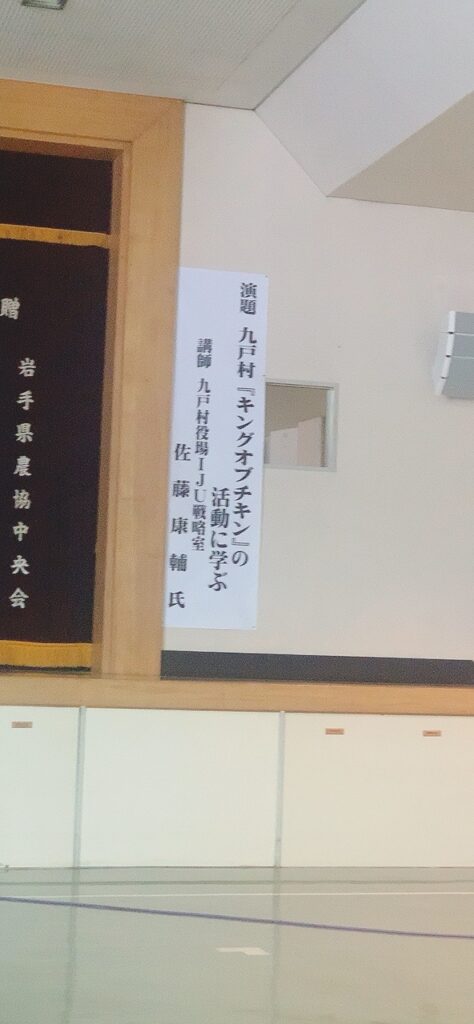 演題 九戸村『キングオブチキン』の
活動に学ぶ
講師 九戸村役場IJU戦略室
佐藤康輔氏
贈
岩手県農協中央会